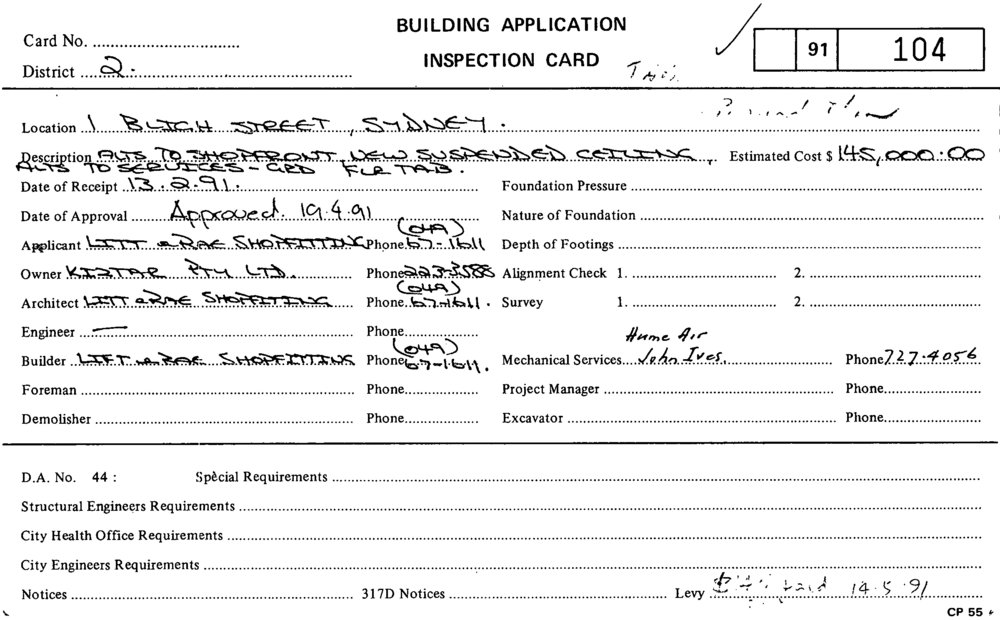 BUILDING APPLICATION
INSPECTION CARD
Card No.
District 2.
91 104
Location 1 BLIGH STREET, SYDNEY.
Description ALTS TO SHOPFRONT NEW SUSPENDED CEILING, Estimated Cost $ 145,000.00
ALTS TO SERVICES - GRD FLR TAB.
Date of Receipt 13.2.91. Foundation Pressure
Date of Approval Approved. 19.4.91 Nature of Foundation
Applicant LITT & RAE SHOPFITTING Phone (049) 67-1611 Depth of Footings
Owner KIZTAR PTY LTD. Phone 223-3588 Alignment Check 1. 2.
Architect LITT & RAE SHOPFITTING Phone (049) 67-1611. Survey 1. 2.
Engineer — Phone
Builder LITT & RAE SHOPFITTING Phone (049) 67-1611. Mechanical Services Hume Air John Ives. Phone 727.4056
Foreman Phone Project Manager Phone
Demolisher Phone Excavator Phone
D.A. No. 44 : Special Requirements
Structural Engineers Requirements
City Health Office Requirements
City Engineers Requirements
Notices 317D Notices Levy Paid 14.5.91
CP 55